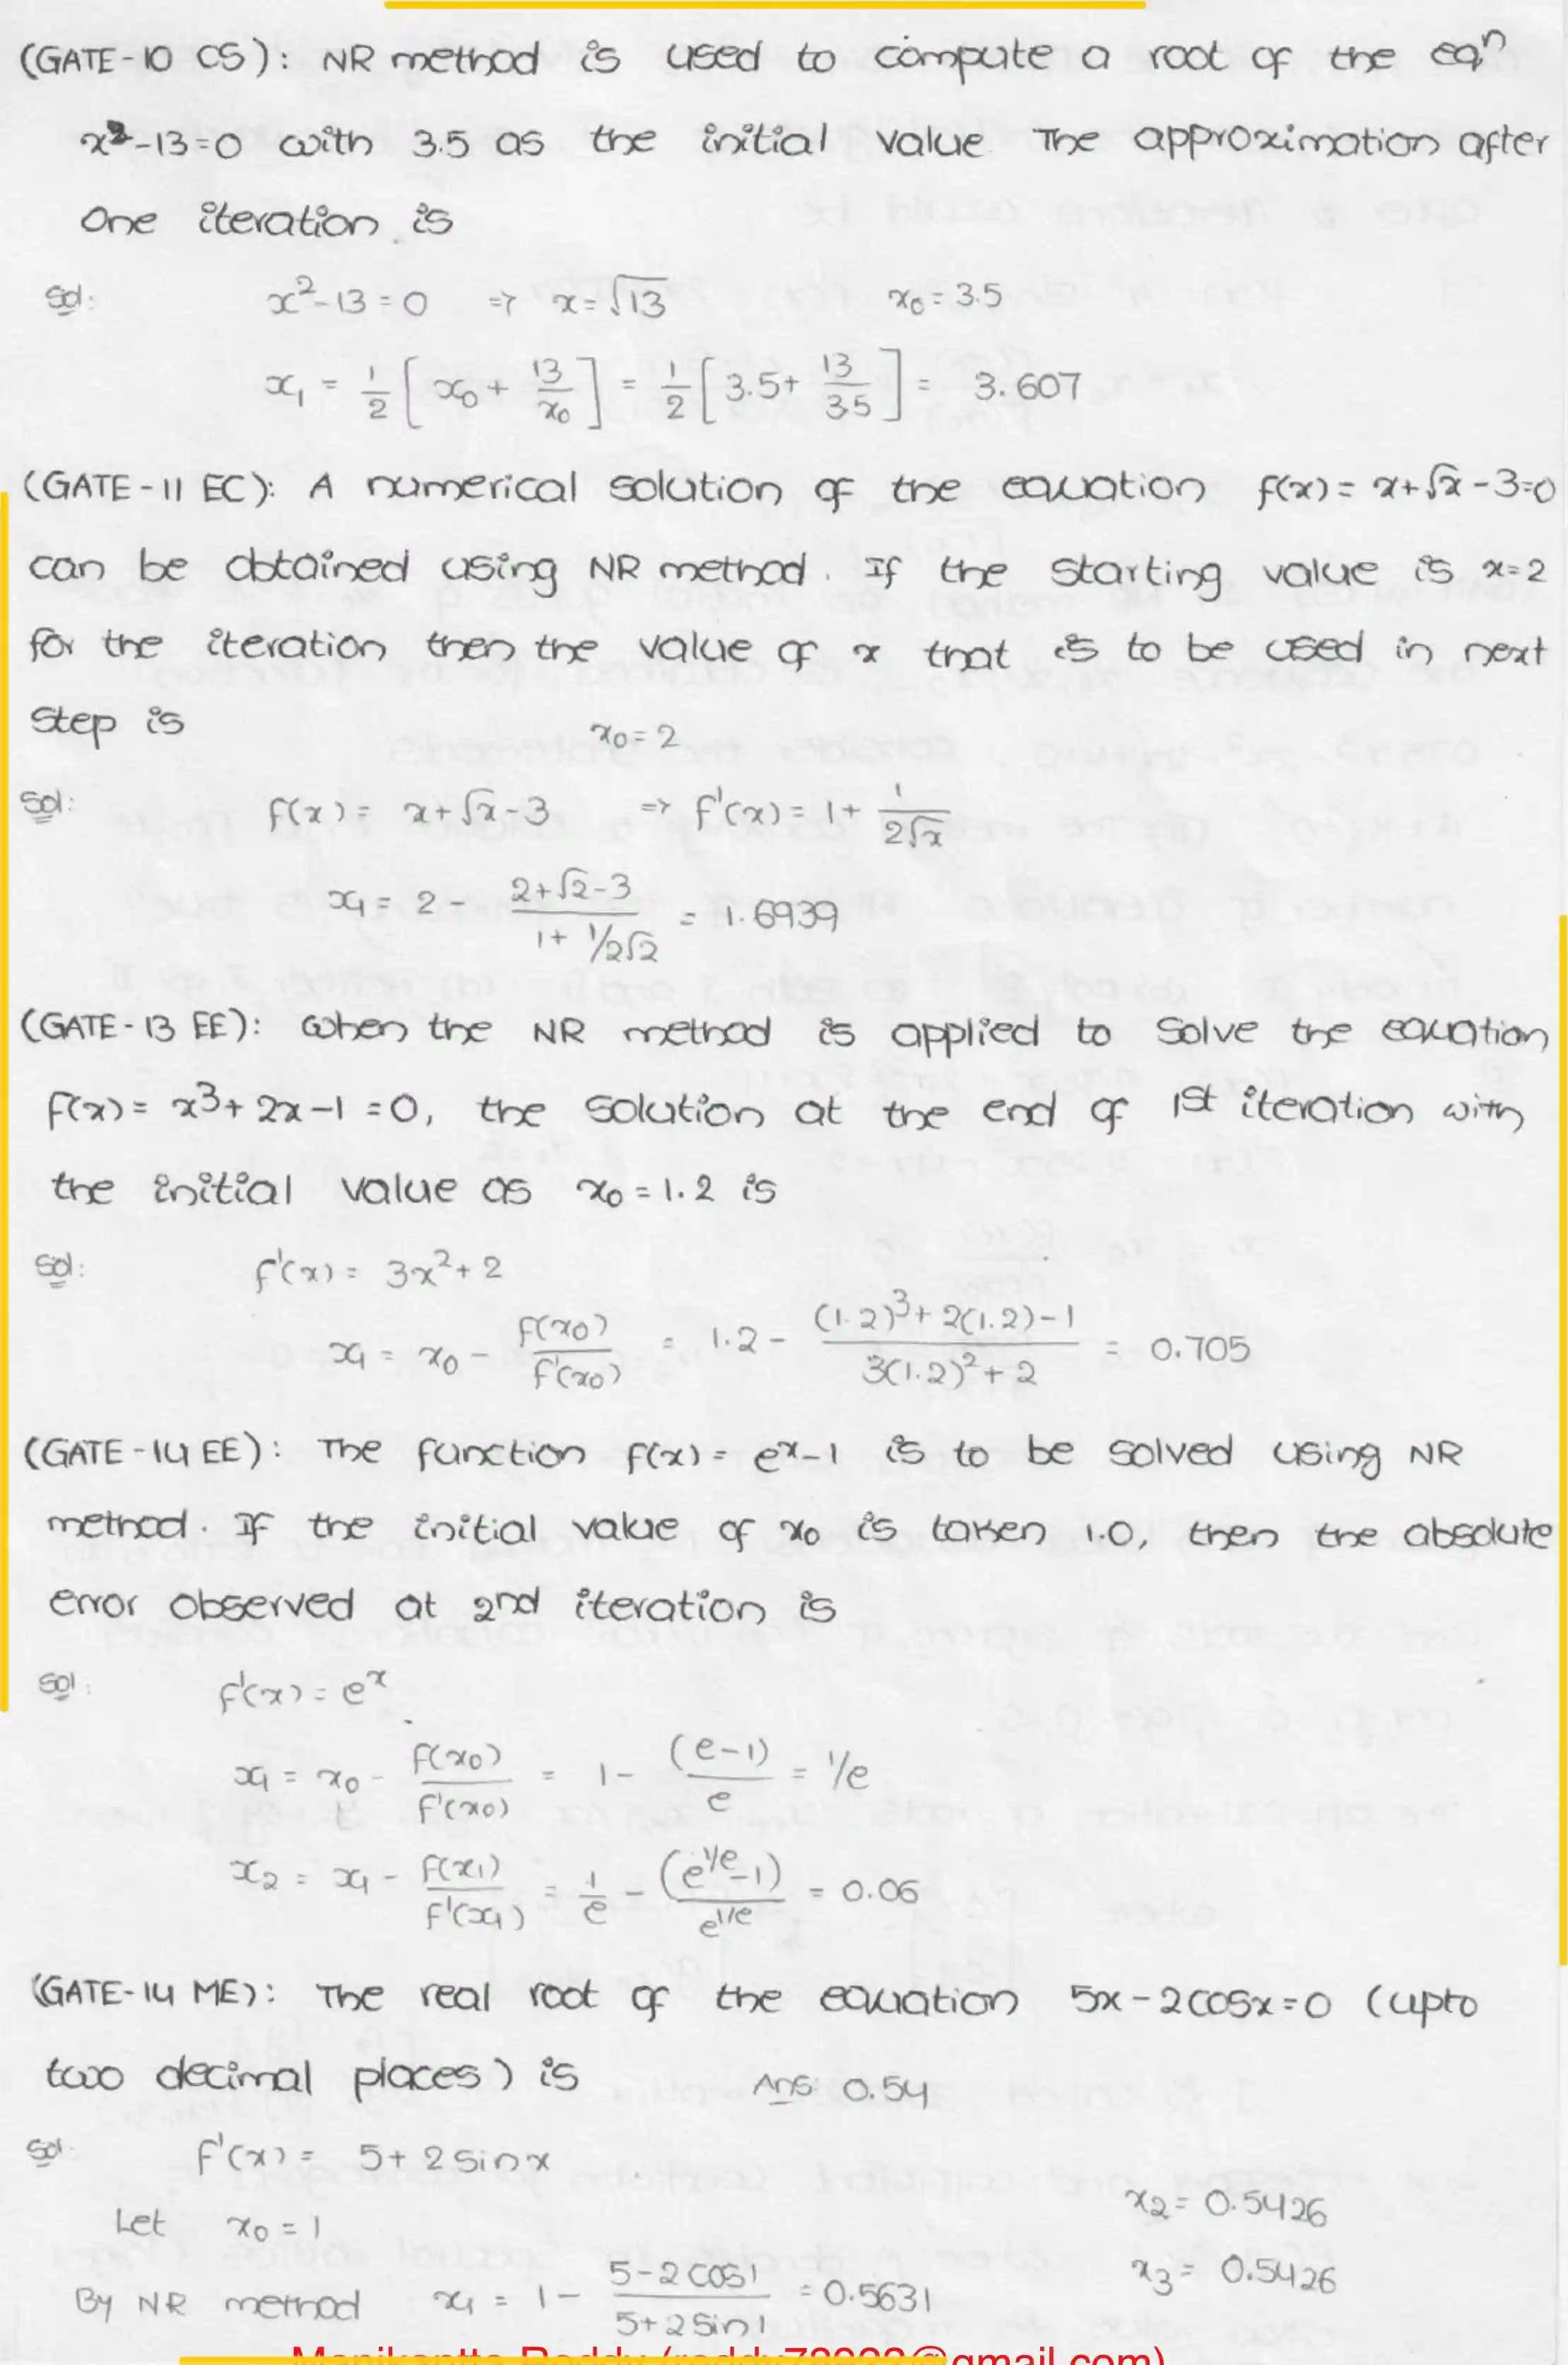 (GATE-10 CS): NR method is used to compute a root of the eqⁿ
x²-13=0 with 3.5 as the initial value. The approximation after
one iteration is
Sol: x²-13=0 => x=√13 x₀=3.5
x₁ = 1/2 [x₀ + 13/x₀] = 1/2 [3.5+ 13/3.5] = 3.607
(GATE-11 EC): A numerical solution of the equation f(x)= x+√x-3=0
can be obtained using NR method. If the starting value is x=2
for the iteration then the value of x that is to be used in next
step is x₀=2
Sol: f(x)= x+√x-3 => f'(x)= 1+ 1/2√x
x₁= 2 - (2+√2-3)/(1+ 1/2√2) = 1.6939
(GATE-13 EE): When the NR method is applied to solve the equation
f(x)= x³+2x-1=0, the solution at the end of 1st iteration with
the initial value as x₀=1.2 is
Sol: f'(x)= 3x²+2
x₁= x₀ - f(x₀)/f'(x₀) = 1.2 - ((1.2)³+2(1.2)-1)/(3(1.2)²+2) = 0.705
(GATE-14 EE): The function f(x)= eˣ-1 is to be solved using NR
method. If the initial value of x₀ is taken 1.0, then the absolute
error observed at 2nd iteration is
Sol: f'(x)= eˣ
x₁= x₀ - f(x₀)/f'(x₀) = 1 - (e-1)/e = 1/e
x₂= x₁ - f(x₁)/f'(x₁) = 1/e - (e^1/e-1)/e^1/e = 0.06
(GATE-14 ME): The real root of the equation 5x-2cosx=0 (upto
two decimal places) is Ans: 0.54
Sol f'(x)= 5+2sinx
Let x₀=1 x₂= 0.5426
By NR method x₁ = 1 - (5-2cos1)/(5+2sin1) = 0.5631 x₃= 0.5426